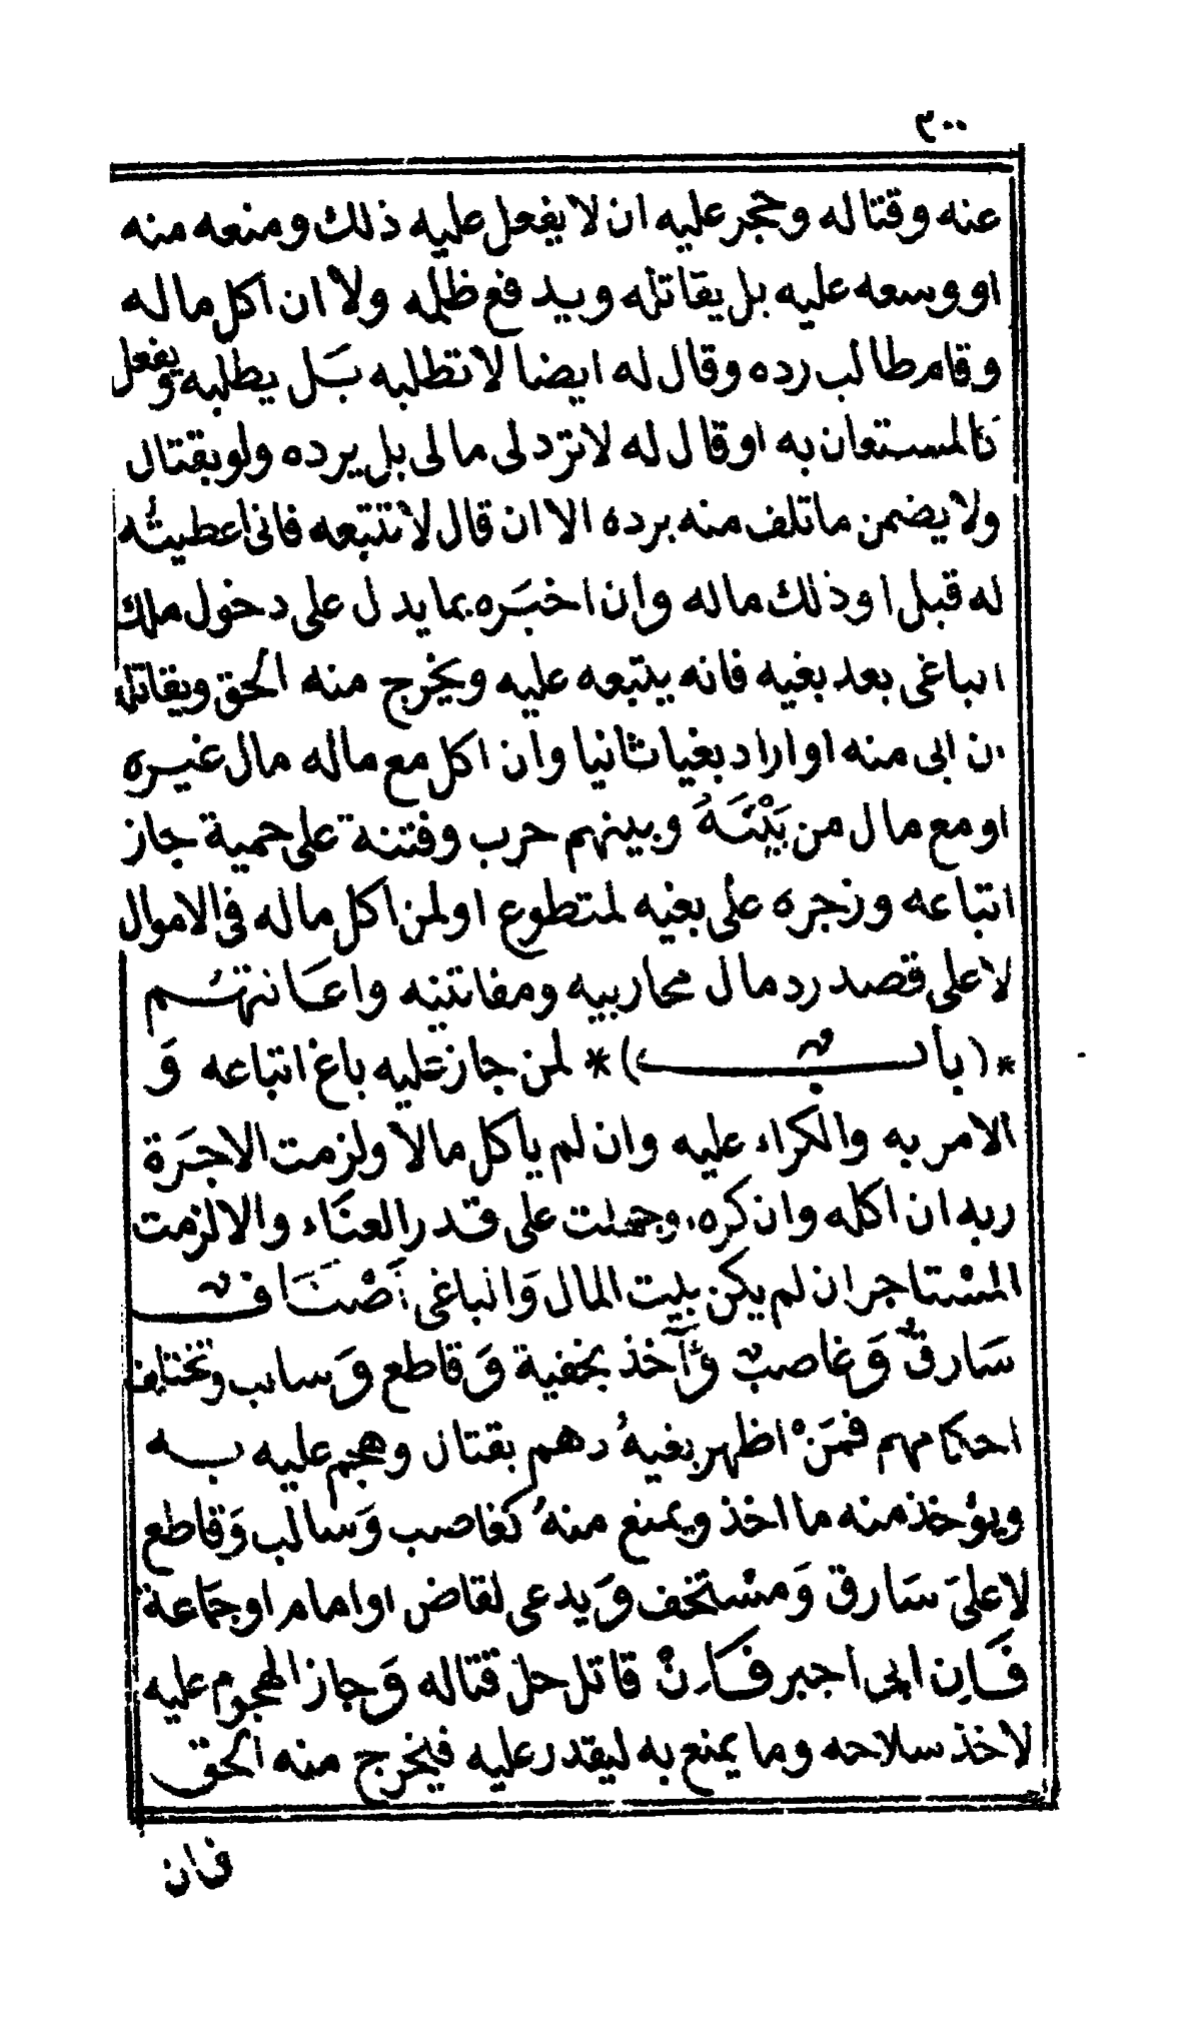 ٣٠٠
عنه وقتاله وحجر عليه ان لا يفعل عليه ذلك ومنعه منه
او وسعه عليه بل يقاتله ويدفع ظلمه ولا ان اكل ماله
وقام طالب رده وقال له ايضا لا تطلبه بَل يطلبه ويفعل
كالمستعان به او قال له لا ترد لى مالى بل يرده ولو بقتال
ولا يضمن ما تلف منه برده الا ان قال لا تتبعه فانى اعطيتُه
له قبل او ذلك ماله وان اخبَره بما يدل على دخول ملك
الباغى بعد بغيه فانه يتبعه عليه ويخرج منه الحق ويقاتله
ان ابى منه او اراد بغيا ثانيا وان اكل مع ماله مال غيره
او مع مال من بَيْنَهُ وبينهم حرب وفتنة على حمية جاز
اتباعه وزجره على بغيه لمتطوع او لمن اكل ماله فى الاموال
لا على قصد رد مال محاربيه ومفاتنيه واعَانتهُم
*(باب)* لمن جاز عليه باغ اتباعه وَ
الامر به والكراء عليه وان لم ياكل مالا ولزمت الاجرَة
ربه ان اكله وان كره وجعلت على قدر العنَاء والا لزمت
المسْتاجر ان لم يكن بيت المال وَالباغى اَصْنَافٌ
سَارقٌ وَغاصبٌ وَآخذ بخفية وَقاطع وَسالب وتختلف
احكامهم فمَنْ اظهر بغيهُ دهم بقتال وهجم عليه به
ويؤخذ منه ما اخذ ويمنع منهُ كغاصب وَسالب وَقاطع
لا علىَ سَارق وَمسْتخف وَيدعى لقاض او امام او جمَاعة
فَان ابى اجبر فَانْ قاتل حل قتاله وَجاز الهجوم عليه
لاخذ سلاحه وما يمنع به ليقدر عليه فيخرج منه الحق
فان